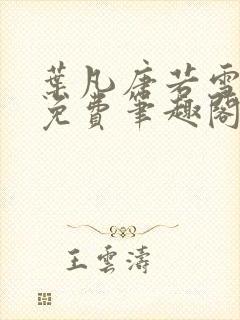 葉凡唐若雪
免費筆趣閣
王雲濤